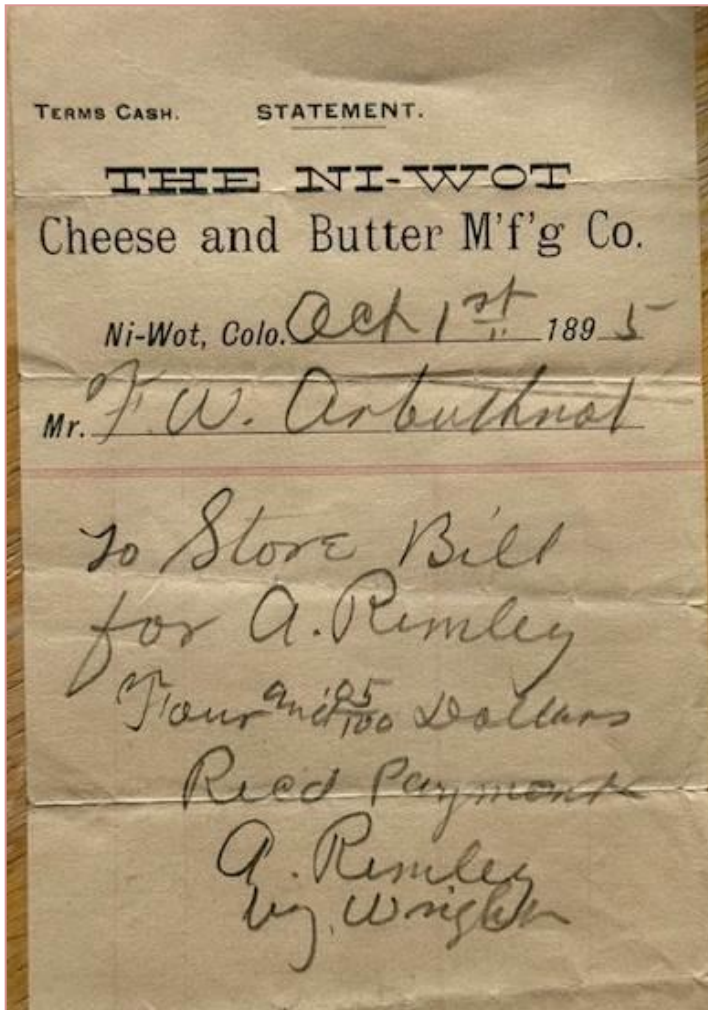 TERMS CASH. STATEMENT.
THE NI-WOT
Cheese and Butter M'f'g Co.
Ni-Wot, Colo. Oct 1st 1895
Mr. F. W. Arbuthnot
To Store Bill
for A. Remley
Four and 05/100 Dollars
Recd Payment
A. Remley
by Wright